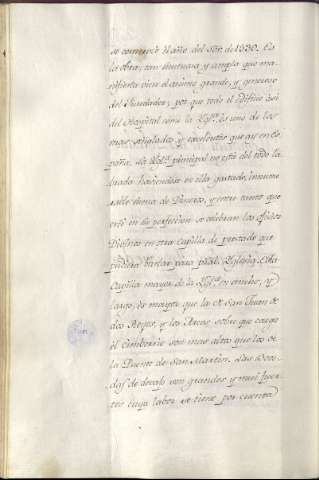 se comenzó el año del Sor. de 1530. Es
la obra, tan suntuosa y ampla que ma-
nifiesta bien el animo grande, y generoso
del Fundador; por que todo el edificio asi
del Hospital como la Yglª. es uno de los
mas señalados, y excelentes que ay en Es-
paña. La Yglª. principal no está del todo la-
brada haviendose en ella gastado, innume-
rable suma de Dineros, y entre tanto que
está en su perfeccion se celebran los oficios
Divinos en otra Capilla de prestado que
pudiera bastar para pral. Yglesia. Es la
Capilla mayor de la Yglª. en ancho, y
largo, de maior que la de San Juan de
los Reyes, y los Arcos sobre que carga
el Cimborrio son mas altos que los de
la Puente de San Martin. Las Bove-
das de devajo son grandes y mui fuer-
tes cuya labor se tiene por cuenta